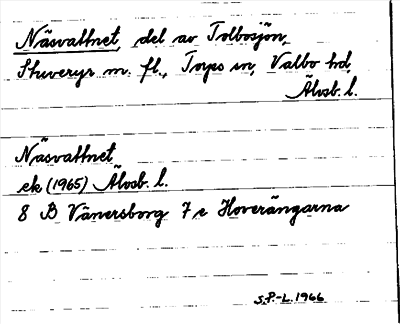 Näsvattnet, del av Tolbosjön,
Stuveryr m. fl., Torps sn, Valbo hd,
Älvsb. l.
Näsvattnet
ek (1965) Älvsb. l.
8 B Vänersborg 7 e Hoverängarna
S.P.-L. 1966